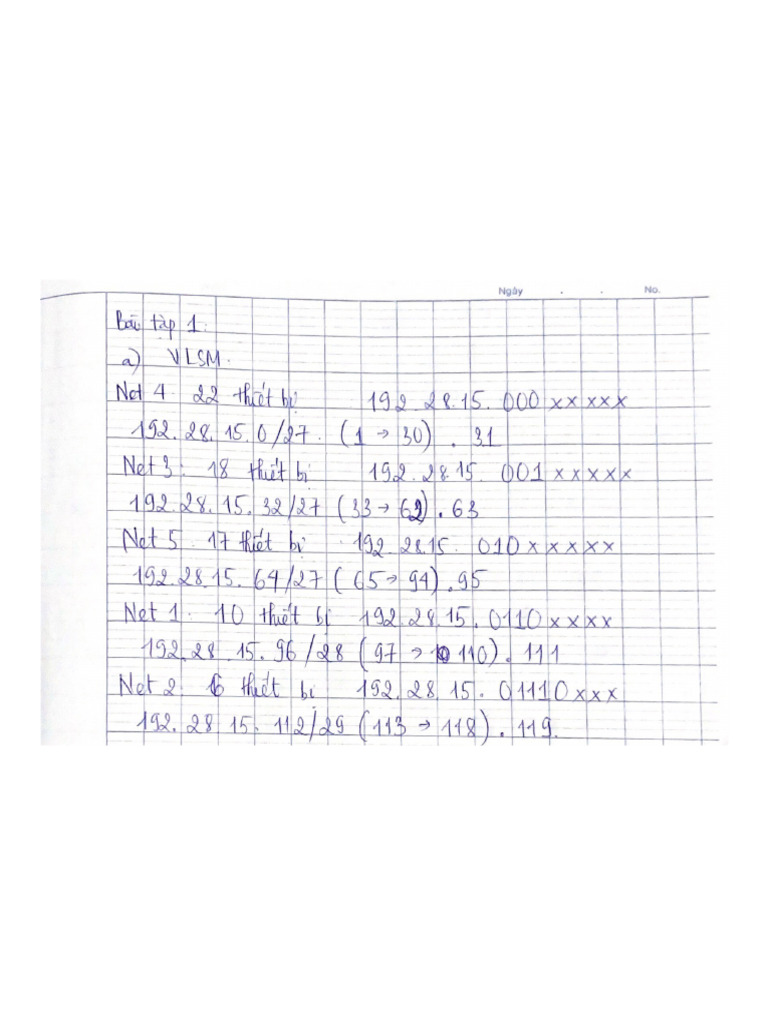 Ngày . . No.
Bài tập 1.
a) VLSM.
Net 4. 22 thiết bị 192.28.15.000xxxxx
192.28.15.0/27. (1 → 30). 31
Net 3: 18 thiết bị 192.28.15.001xxxxx
192.28.15.32/27 (33 → 62). 63
Net 5. 17 thiết bị 192.28.15.010xxxxx
192.28.15.64/27 (65 → 94). 95
Net 1. 10 thiết bị 192.28.15.0110xxxx
192.28.15.96/28 (97 → 110). 111
Net 2. 6 thiết bị 192.28.15.01110xxx
192.28.15.112/29 (113 → 118). 119.